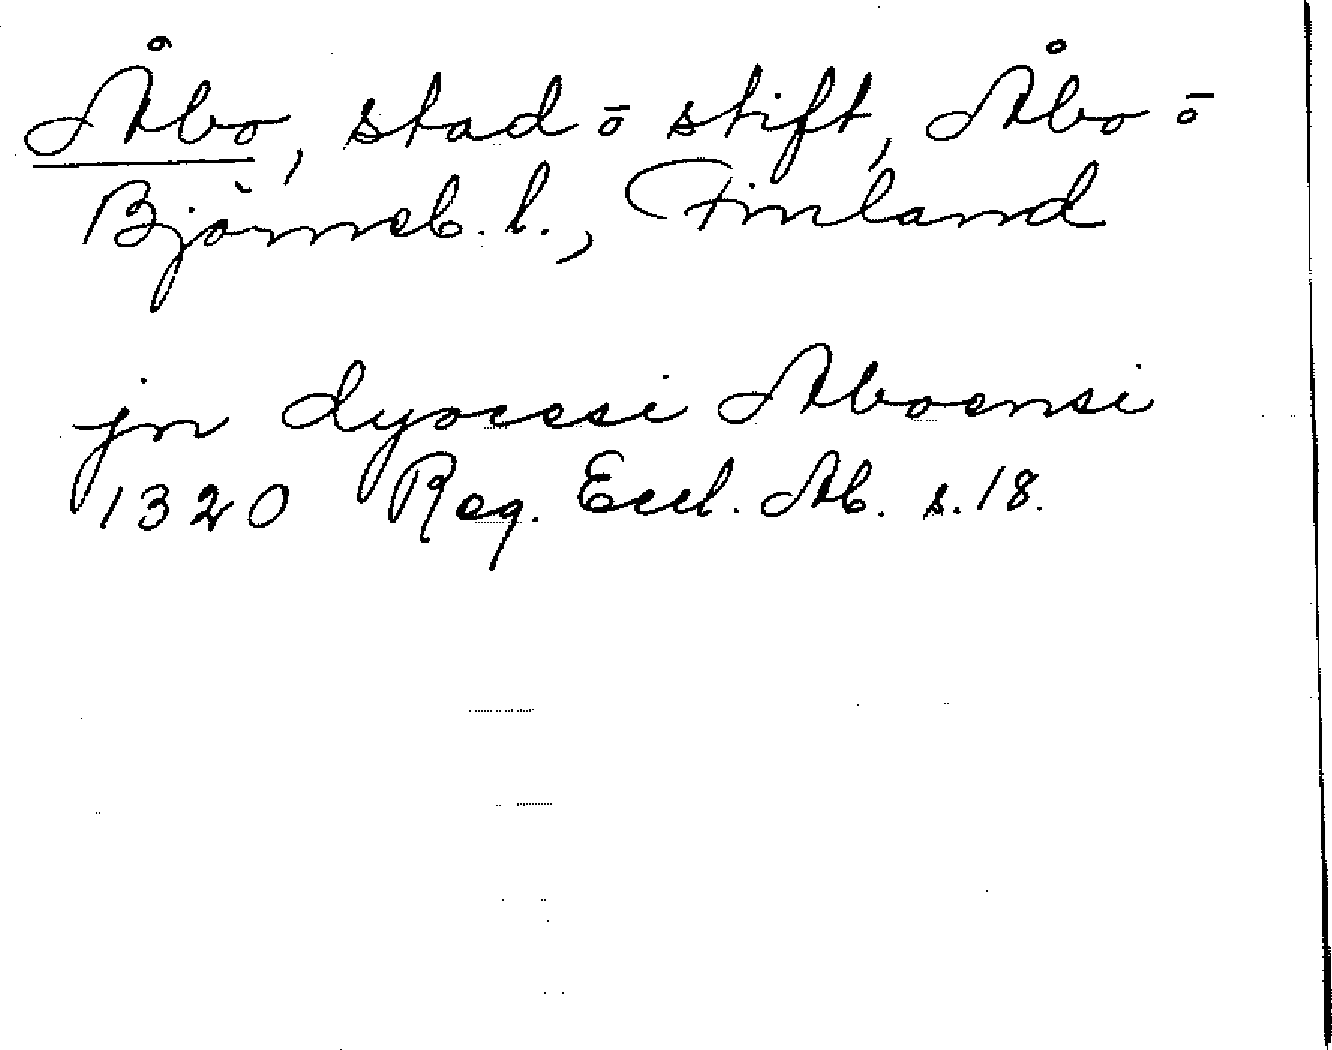 Åbo, stad ō stift, Åbo ō
Björneb. l., Finland
jn dyocesi Aboensi
1320 Reg. Eccl. Ab. s. 18.